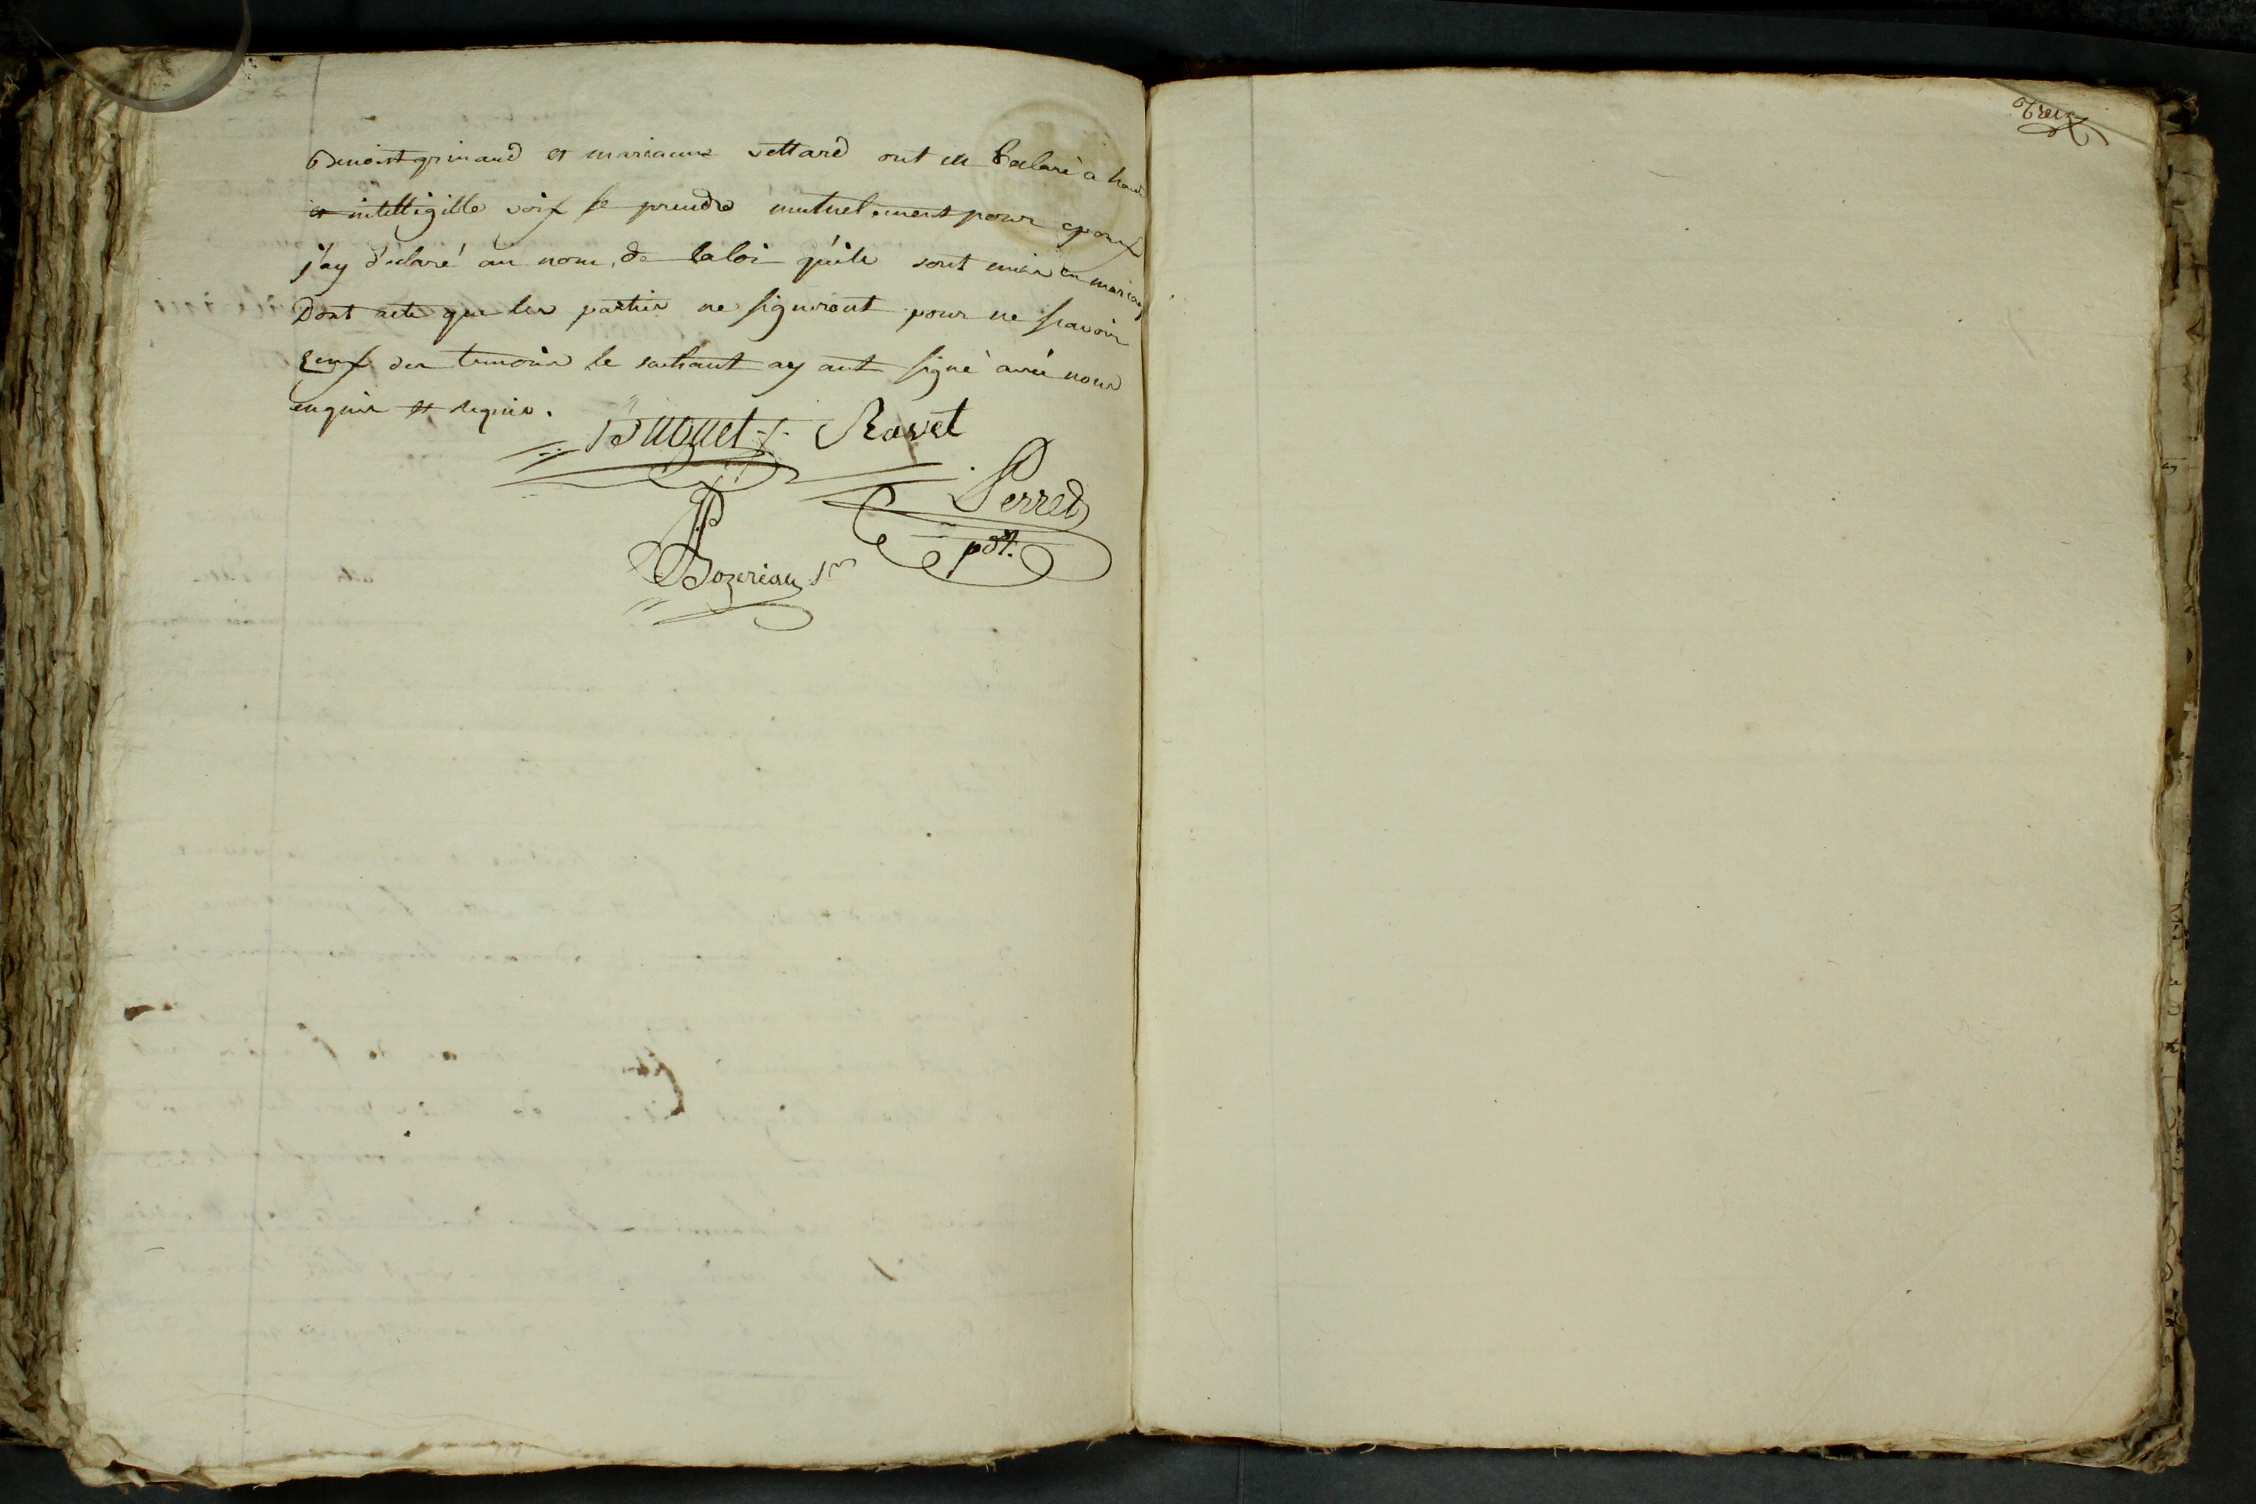 Benoist grimaud et marianne vettard ont eu declaré a haute
et intelligille voix se prendre mutuelement pour epoux
j'ay d'eclaré au nom de la loi qu'ils sont unis en mariage
Dont acte que les parties ne signeront pour ne scavoir
ceux des temoins le sachant ayant signé avec nous
enquis et requis.
Buguet Ravet
Perret
pdt.
Bozeriau Sre